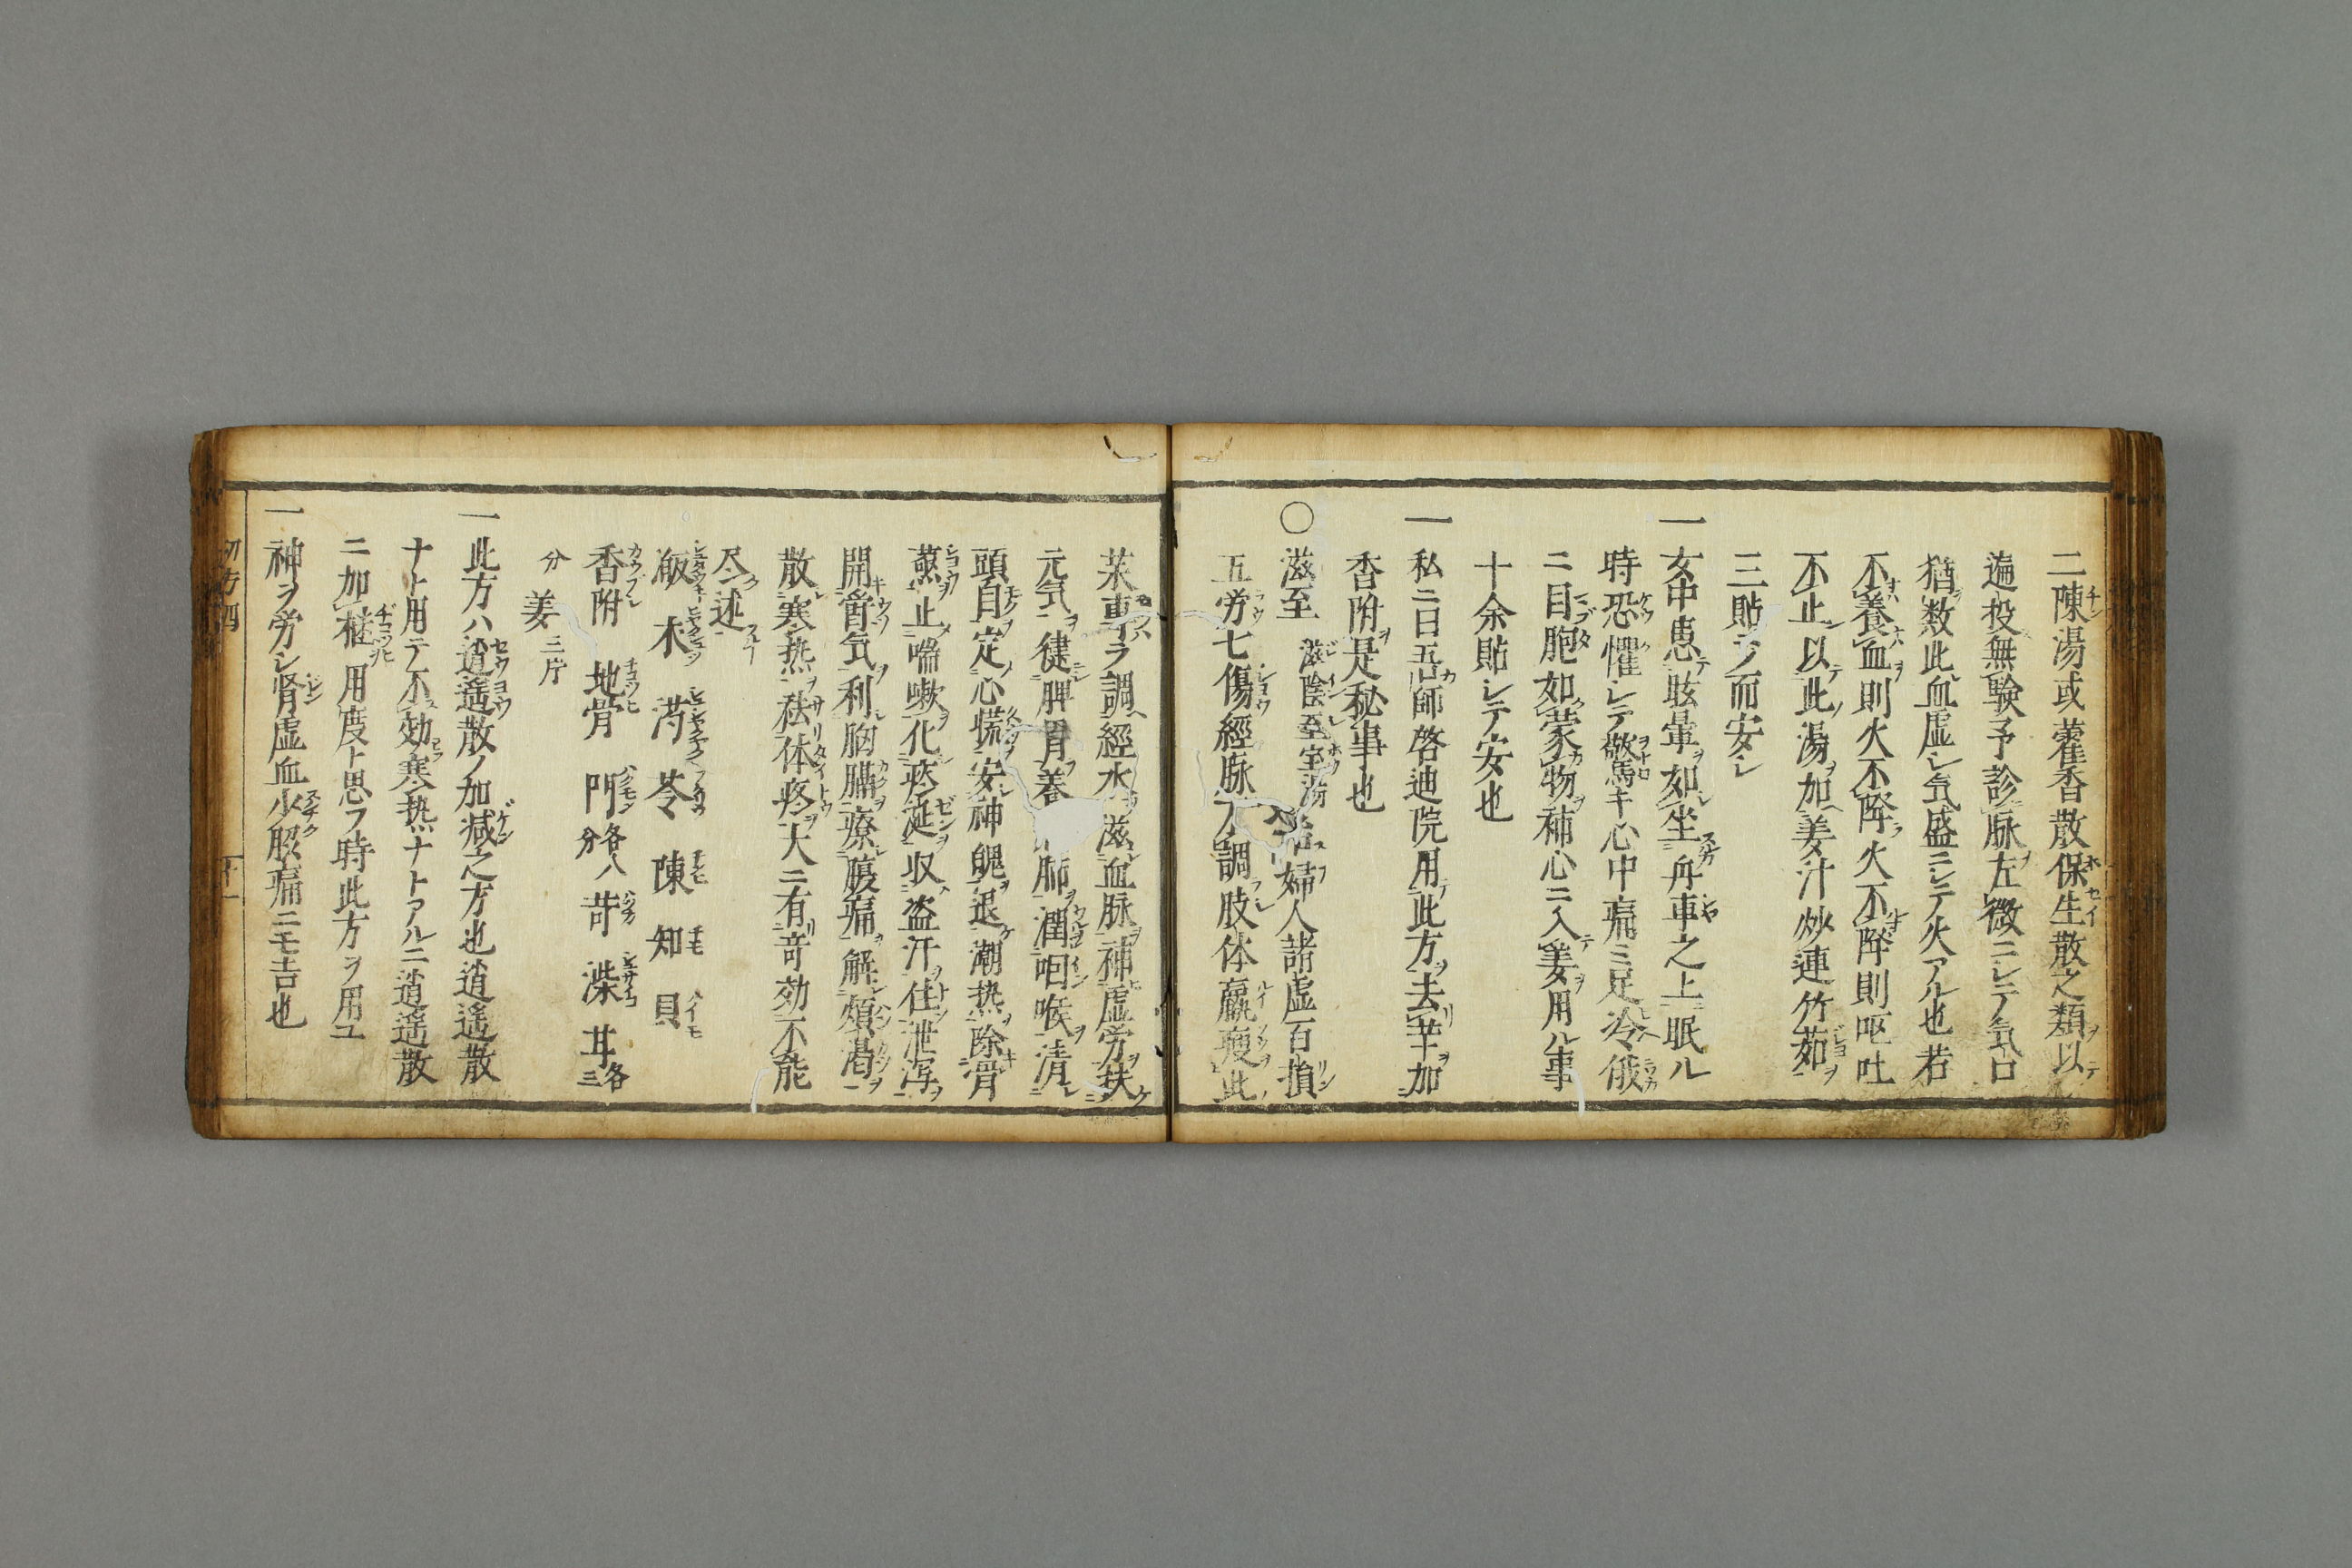 二陳湯或藿香散保生散之類以
遍投無験予診脉左微ニシテ気口
猶数此血虚シ気盛ニシテ火アル也若
不養血則火不降火不降則呕吐
不止以此湯加姜汁炒連竹茹
三貼ヲ而安シ
一女中患眩暈如坐舟車之上眠ル
時恐懼シテ驚キ心中痛三足冷俄
ニ目胞如蒙物補心ニ入姜用ル事
十余貼シテ安也
一私ニ曰吾師啓迪院用此方去芊加
香附是秘事也
○滋至 滋陰至宝湯 治婦人諸虚百損
五労七傷經脉不調肢体羸痩此
茱專ラ調經水滋血脉補虚労扶
元気健脾胃養 肺潤咽喉清
頭目定心慌安神魄退潮热除骨
蒸止喘嗽化痰涎収盗汗住泄泻
開胷気利胸膈療腹痛解煩渇
散寒热袪体疼大ニ有竒効不能
尽述
皈 木 芍 苓 陳 知 貝
香附 地骨 門各八分 苛 柴 甘各三
分 姜三片
一此方ハ逍遥散ノ加減之方也逍遥散
ナト用テ不効寒热ナトアルニ逍遥散
ニ加 用度ト思フ時此方ヲ用ユ
一神ヲ労シ腎虚血少服痛ニモ吉也
切方 十一